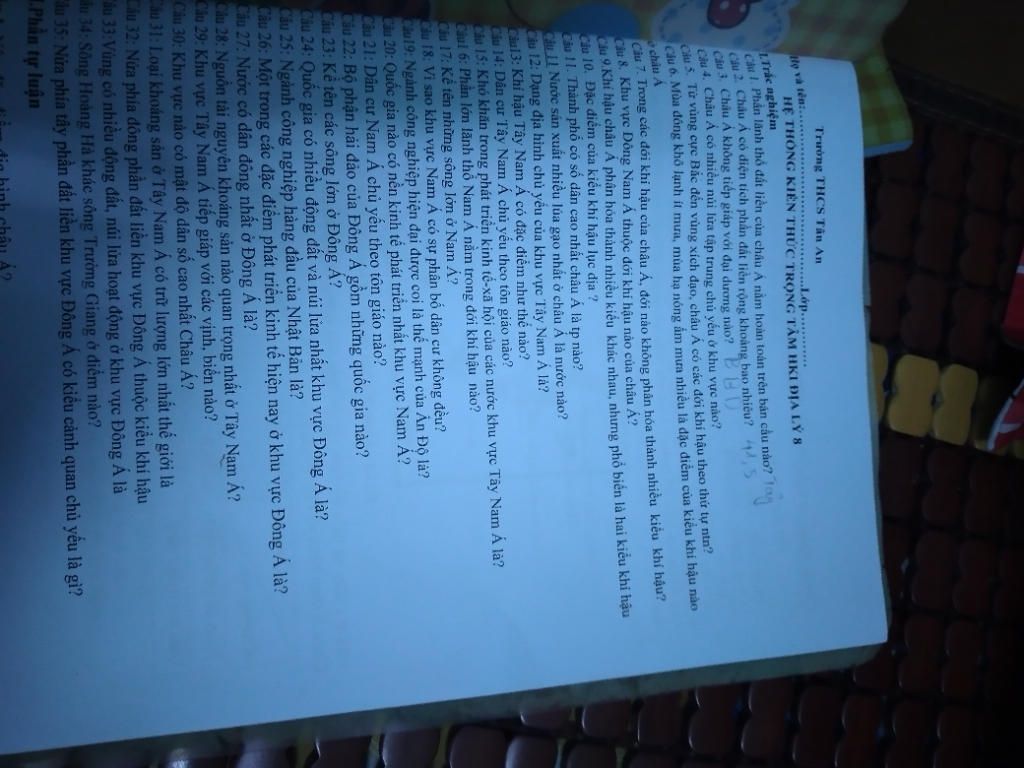 Trường THCS Tân An
Họ và tên:.................................Lớp...........
HỆ THỐNG KIẾN THỨC TRỌNG TÂM HKI ĐỊA LÝ 8
I.Trắc nghiệm
Câu 1. Phần lãnh thổ đất liền của châu Á nằm hoàn toàn trên bán cầu nào?
Câu 2. Châu Á có diện tích phần đất liền rộng khoảng bao nhiêu? 41,5
Câu 3. Châu Á không tiếp giáp với đại dương nào?
Câu 4. Châu Á có nhiều núi lửa tập trung chủ yếu ở khu vực nào?
Câu 5. Từ vùng cực Bắc đến vùng xích đạo, châu Á có các đới khí hậu theo thứ tự ntn?
Câu 6. Mùa đông khô lạnh ít mưa, mùa hạ nóng ẩm mưa nhiều là đặc điểm của kiểu khí hậu nào
ở châu Á
Câu 7. Trong các đới khí hậu của châu Á, đới nào không phân hóa thành nhiều kiểu khí hậu?
Câu 8. Khu vực Đông Nam Á thuộc đới khí hậu nào của châu Á?
Câu 9.Khí hậu châu Á phân hóa thành nhiều kiểu khác nhau, nhưng phổ biến là hai kiểu khí hậu
Câu 10. Đặc điểm của kiểu khí hậu lục địa ?
Câu 11. Thành phố có số dân cao nhất châu Á là tp nào?
Câu 11.Nước sản xuất nhiều lúa gạo nhất ở châu Á là nước nào?
Câu 12. Dạng địa hình chủ yếu của khu vực Tây Nam Á là?
Câu13: Khí hậu Tây Nam Á có đặc điểm như thế nào?
Câu 14. Dân cư Tây Nam Á chủ yếu theo tôn giáo nào?
Câu 15: Khó khăn trong phát triển kinh tế-xã hội của các nước khu vực Tây Nam Á là?
Câu1 6: Phần lớn lãnh thổ Nam Á nằm trong đới khí hậu nào?
Câu 17: Kể tên những sông lớn ở Nam Á?
Câu 18. Vì sao khu vực Nam Á có sự phân bố dân cư không đều?
Câu19: Ngành công nghiệp hiện đại được coi là thế mạnh của Ấn Độ là?
Câu 20: Quốc gia nào có nền kinh tế phát triển nhất khu vực Nam Á?
Câu 21: Dân cư Nam Á chủ yếu theo tôn giáo nào?
Câu 22: Bộ phận hải đảo của Đông Á gồm những quốc gia nào?
Câu 23 Kể tên các sông lớn ở Đông Á?
Câu 24: Quốc gia có nhiều động đất và núi lửa nhất khu vực Đông Á là?
Câu 25: Ngành công nghiệp hàng đầu của Nhật Bản là?
Câu 26: Một trong các đặc điểm phát triển kinh tế hiện nay ở khu vực Đông Á là?
Câu 27: Nước có dân đông nhất ở Đông Á là?
Câu 28: Nguồn tài nguyên khoáng sản nào quan trọng nhất ở Tây Nam Á?
Câu 29: Khu vực Tây Nam Á tiếp giáp với các vịnh, biển nào?
Câu 30: Khu vực nào có mật độ dân số cao nhất Châu Á?
Câu 31: Loại khoáng sản ở Tây Nam Á có trữ lượng lớn nhất thế giới là
Câu 32: Nửa phía đông phần đất liền khu vực Đông Á thuộc kiểu khí hậu
Câu 33:Vùng có nhiều động đất, núi lửa hoạt động ở khu vực Đông Á là
Câu 34: Sông Hoàng Hà khác sông Trường Giang ở điểm nào?
Câu 35: Nửa phía tây phần đất liền khu vực Đông Á có kiểu cảnh quan chủ yếu là gì?
II.Phần tự luận
địa hình châu Á?